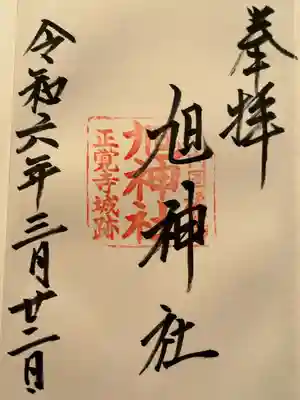 奉拝
旭神社
正覚寺城跡
令和六年三月廿二日